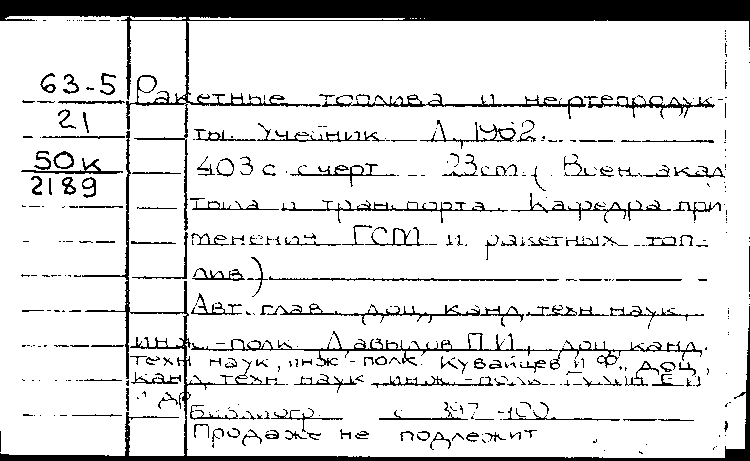 63-5 Ракетные топлива и нефтепродук-
21 ты. Учебник Л., 1962.
50к 403 с. с черт. 23cm. (Воен. акад
2189
тыла и транспорта. Кафедра при
менения ГСМ и ракетных топ-
лив).
Авт. глав. доц., канд. техн. наук,
инж.-полк. Давыдов П.И., доц. канд.
техн. наук, инж.-полк. Кувайцев И.Ф., доц.,
канд. техн. наук инж.-полк.
и др
Библиогр. с 397-400.
Продаже не подлежит